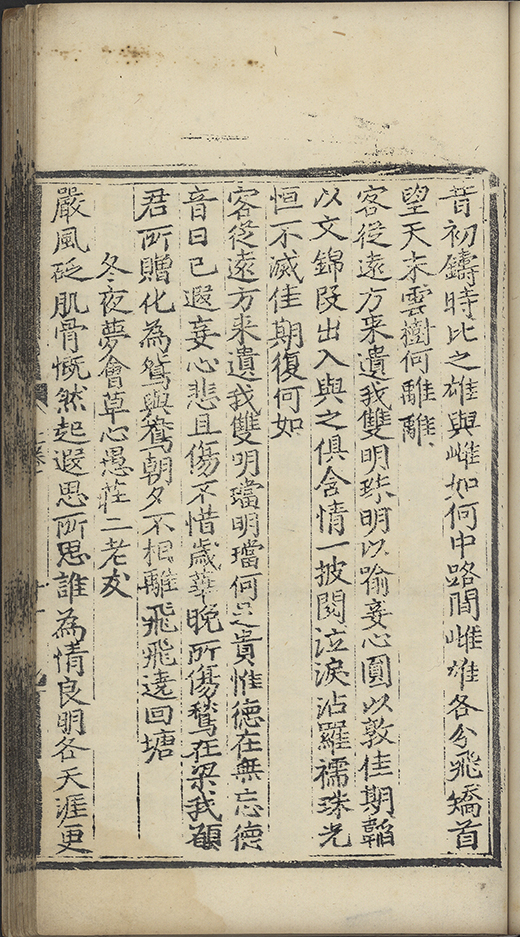 昔初鑄時比之雄與雌如何中路間雌雄各分飛矯首
望天末雲樹何離離
客從遠方來遺我雙明珠明以喻妾心圓以敦佳期韜
以文錦段出入與之俱含情一披閱泣淚沾羅襦珠光
恒不滅佳期復何如
客從遠方來遺我雙明璫明璫何足貴惟德在無忘德
音日已遐妾心悲且傷不惜歲華晚所傷鶖在梁我願
君所贈化為鴛與鴦朝夕不相離飛飛遶回塘
冬夜夢會草心愚莊二老友
嚴風砭肌骨慨然起遐思所思誰為情良朋各天涯更